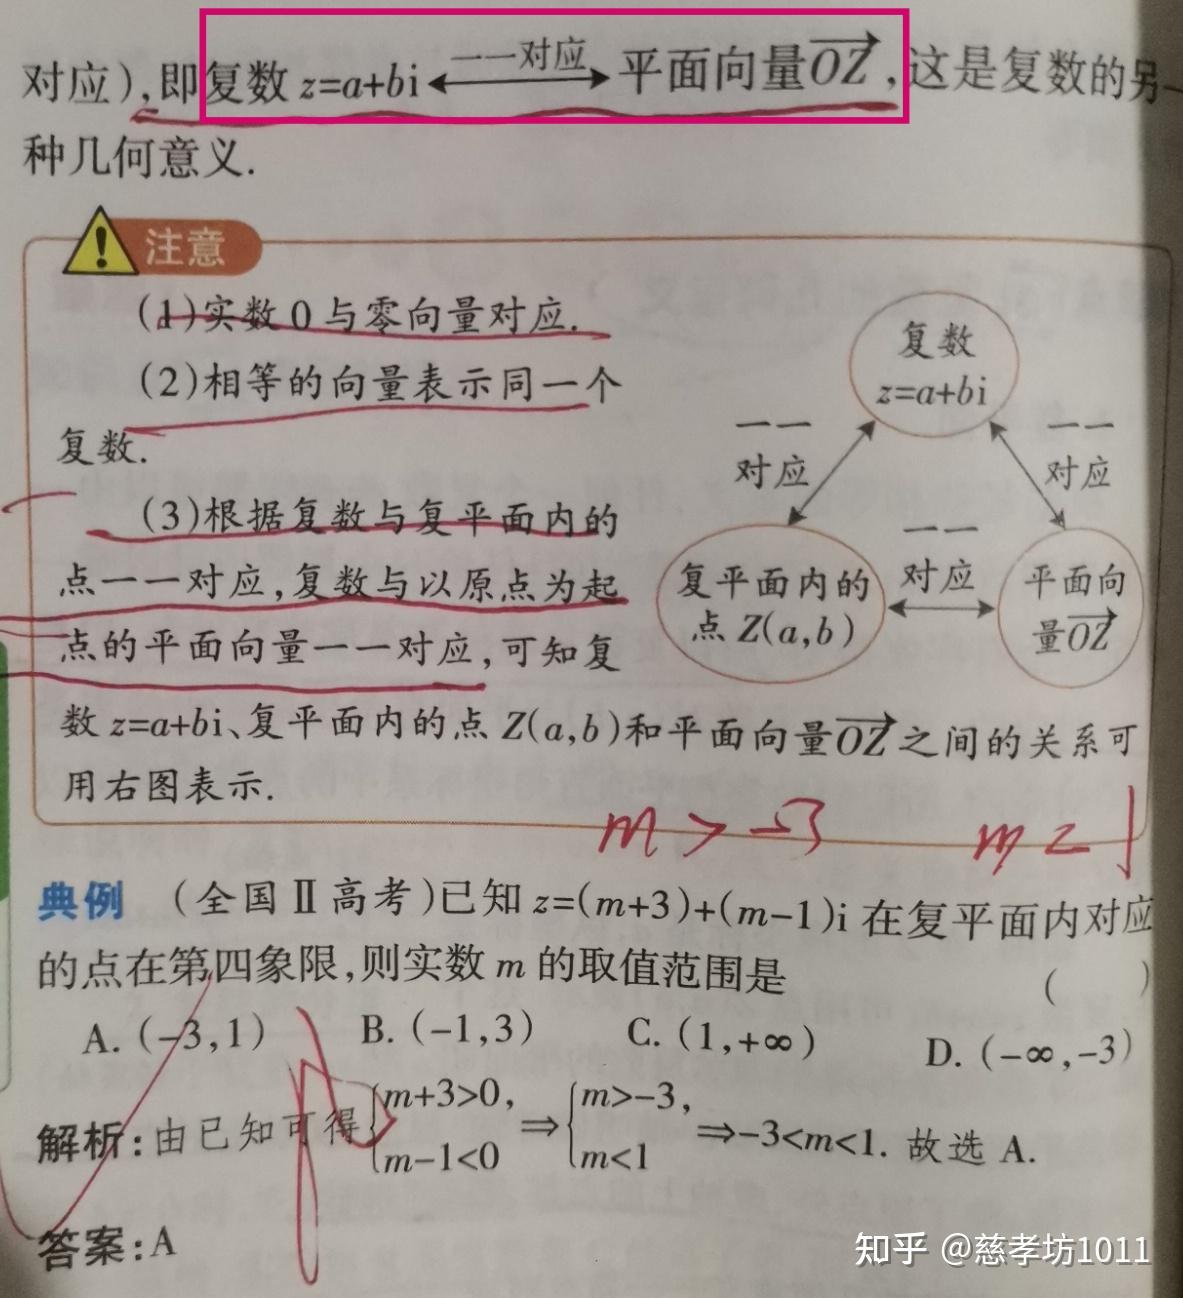 对应),即复数 z=a+bi ⟷(一一对应) 平面向量OZ,这是复数的另一
种几何意义.
注意
(1)实数 0 与零向量对应.
(2)相等的向量表示同一个
复数.
(3)根据复数与复平面内的
点一一对应,复数与以原点为起
点的平面向量一一对应,可知复
复数
z=a+bi
一一
对应
一一
对应
复平面内的
点 Z(a,b)
一一
对应
平面向
量OZ
数 z=a+bi、复平面内的点 Z(a,b)和平面向量OZ之间的关系可
用右图表示.
m > -3
典例 (全国Ⅱ高考)已知 z=(m+3)+(m-1)i 在复平面内对应
的点在第四象限,则实数 m 的取值范围是 ( )
A. (-3,1) B. (-1,3) C. (1,+∞) D. (-∞,-3)
解析:由已知可得{m+3>0, m-1<0 ⇒ {m>-3, m<1 ⇒-3<m<1. 故选 A.
答案:A
知乎 @慈孝坊1011